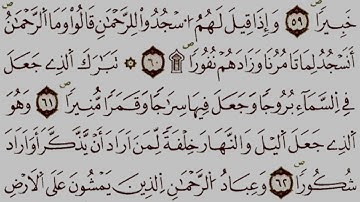 خَبِيرٗا ٥٩ وَإِذَا قِيلَ لَهُمُ اُ۟سْجُدُواْ لِلرَّحْمَٰنِ قَالُواْ وَمَا اَ۬لرَّحْمَٰنُ
أَنَسْجُدُ لِمَا تَامُرُنَا وَزَادَهُمْ نُفُورٗا ۩ ٦٠ ۞ تَبَٰرَكَ اَ۬لذِے جَعَلَ
فِے اِ۬لسَّمَآءِ بُرُوجٗا وَجَعَلَ فِيهَا سِرَٰجٗا وَقَمَرٗا مُّنِيرٗا ٦١ وَهُوَ
اَ۬لذِے جَعَلَ اَ۬ليْلَ وَالنَّهَارَ خِلْفَةٗ لِّمَنَ اَرَادَ أَنْ يَّذَّكَّرَ أَوَ اَرَادَ
شُكُورٗا ٦٢ وَعِبَادُ اُ۬لرَّحْمَٰنِ اِ۬لذِينَ يَمْشُونَ عَلَى اَ۬لَارْضِ